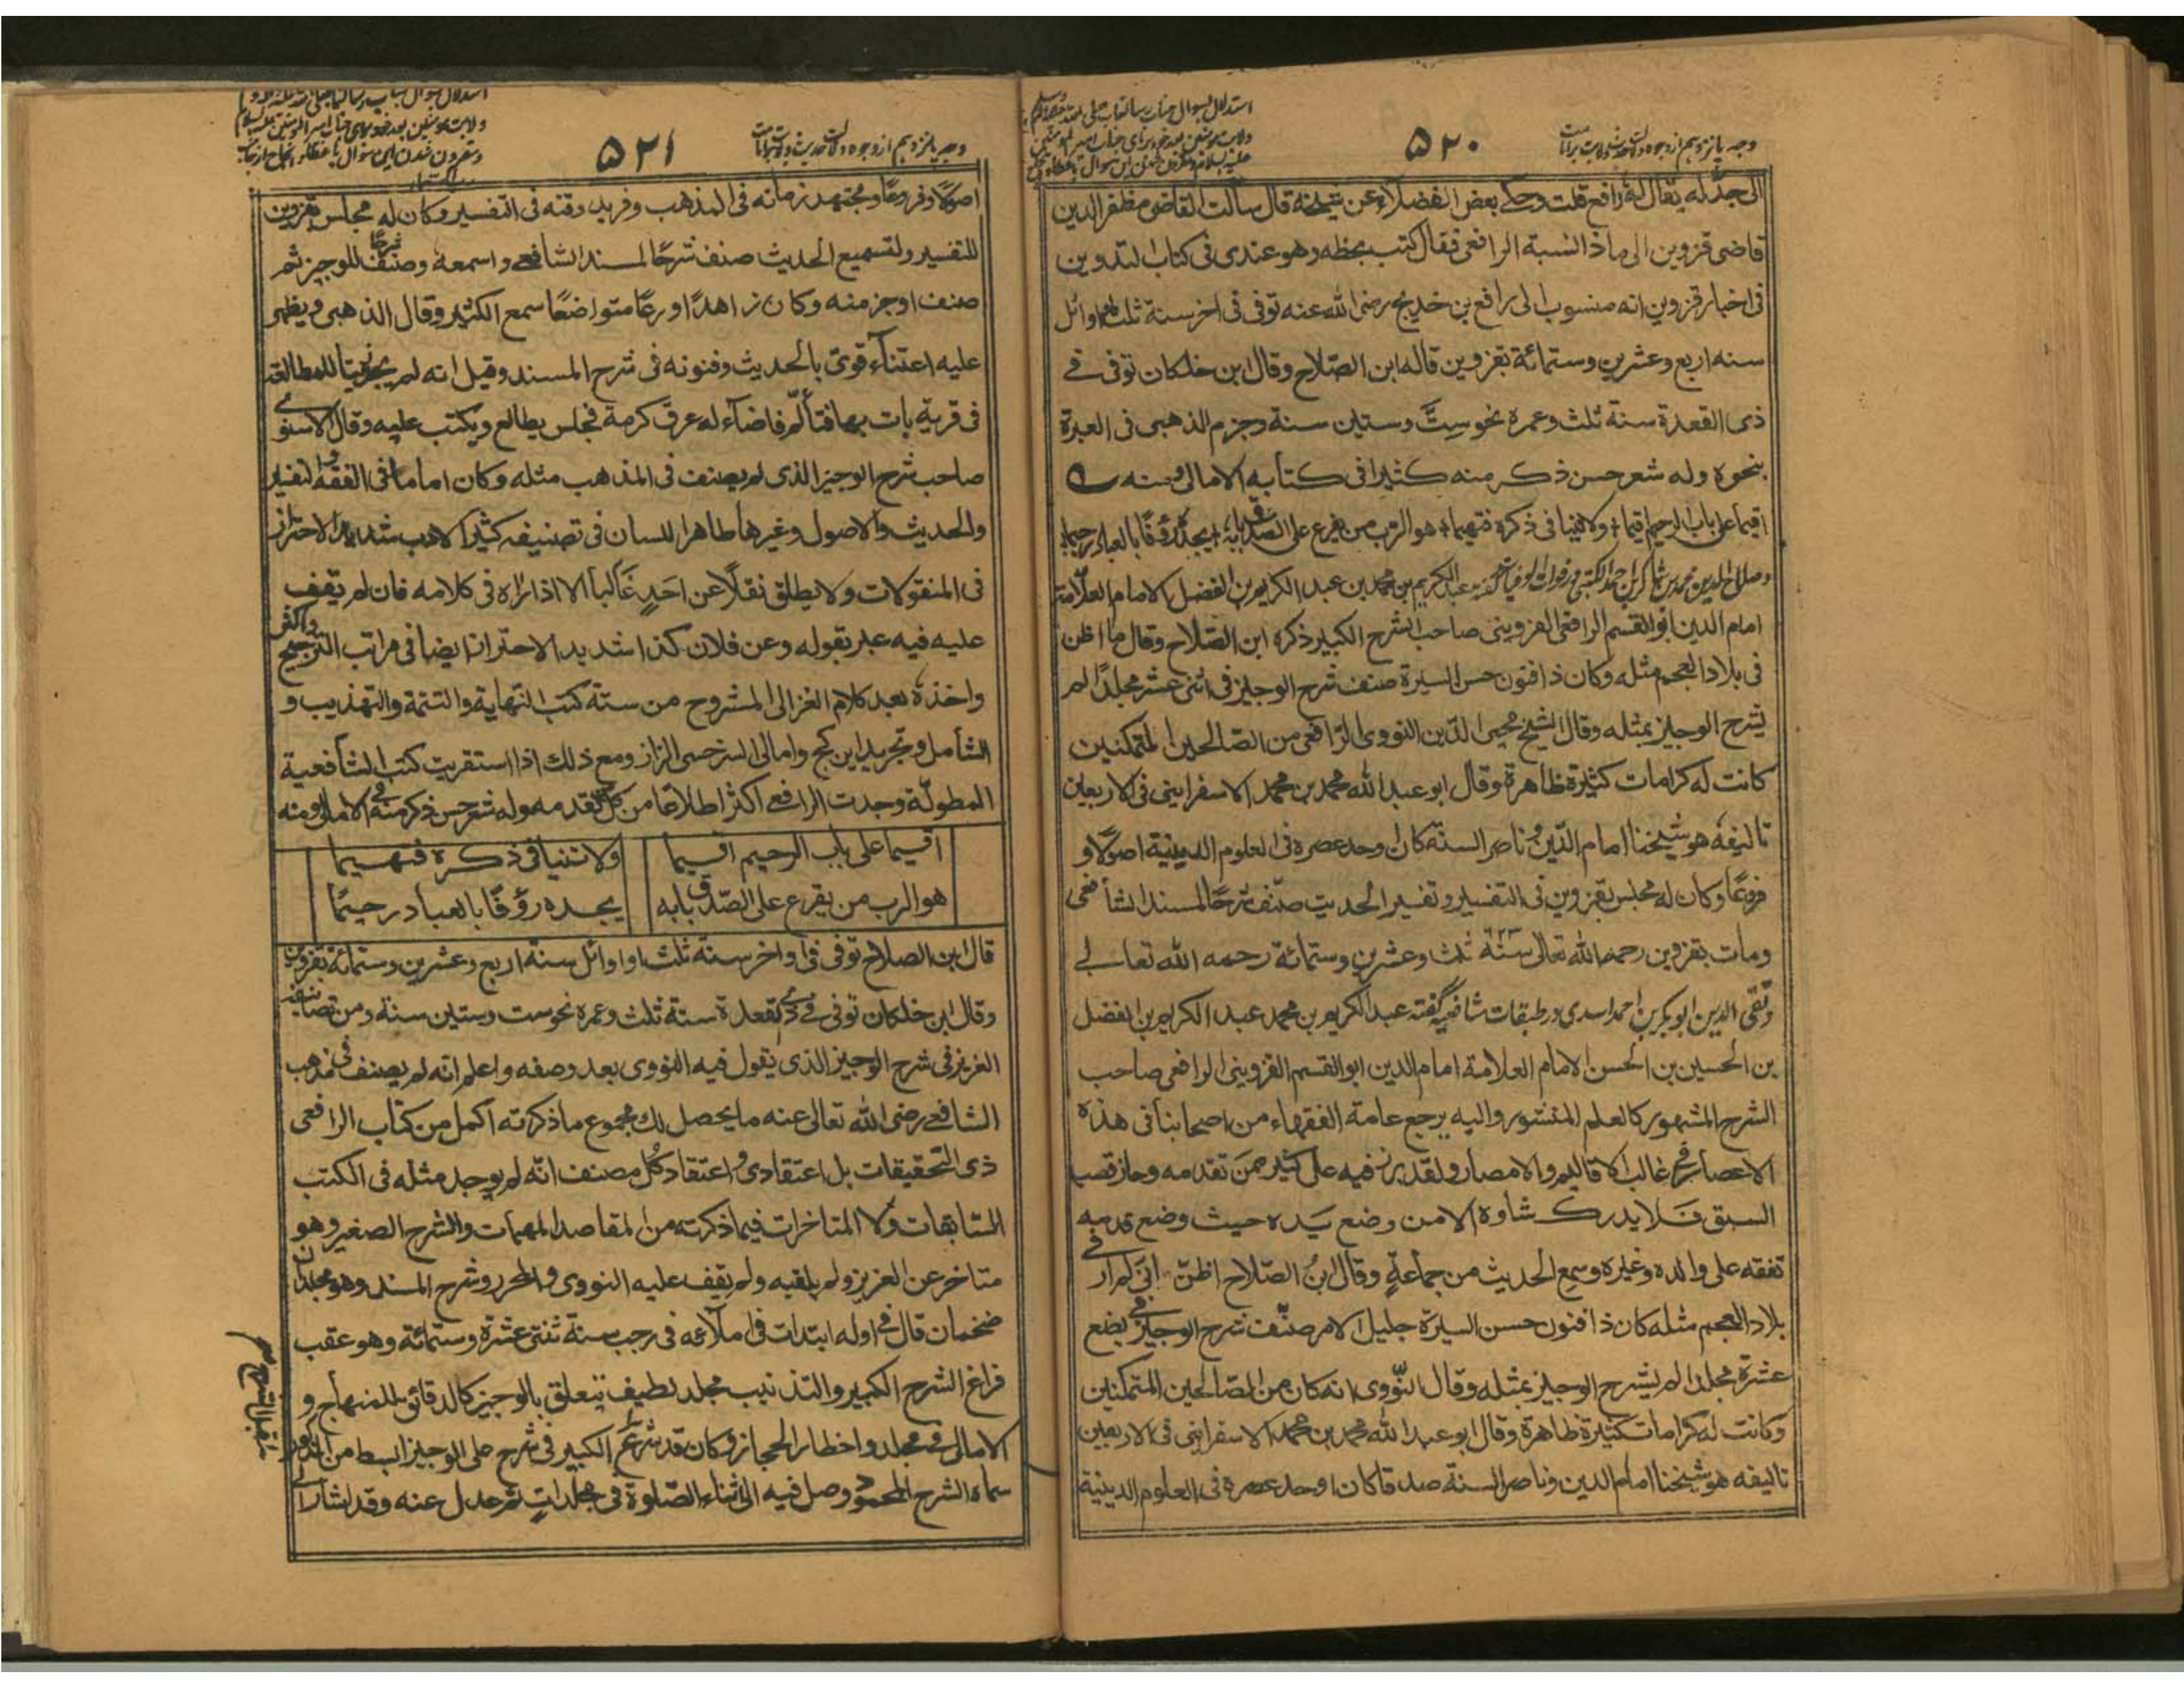 وجه پانزدهم از وجوه دلالت حدیث ولایت بر امامت
۵۲۰
استدلال بسوال جناب رسالتمآب صلی الله علیه و آله و سلم
ولایت مومنین بعد خود برای جناب امیر المومنین
علیه السلام و مقرون شدن این سوال با عطا
الى جد له يقال له رافع قلت وحكے بعض الفضلاء عن شيخه قال سالت القاضى مظفر الدين
قاضى قزوين الى ماذا النسبة الرافعى فقال كتب بخطه وهو عندى فى كتاب التدوين
فى اخبار قزوين انه منسوب الى رافع بن خديج رضى الله عنه توفى فى اخر سنة ثلث او اوائل
سنه اربع وعشرين وستمائة بقزوين قاله ابن الصلاح وقال ابن خلكان توفى فے
ذى القعدة سنة ثلث وعمره نحو ستّ وستين سنة وجزم الذهبى فى العبرة
بنحوه وله شعر حسن ذكر منه كثيرا فى كتابه الامالى ومنه
اقيما على باب الرحيم اقيما ولا تنيا فى ذكره فتهيما هو الرب من يقرع على الصدق بابه يجده رؤفا بالعباد رحيما
وصلاح الدين محمد بن شاكر بن احمد الكتبى در فوات الوفيات گفته عبد الكريم بن محمد بن عبد الكريم بن الفضل الامام العلامة
امام الدين ابو القسم الرافعى القزوينى صاحب الشرح الكبير ذكره ابن الصلاح وقال ما اظن
فى بلاد العجم مثله وكان ذا فنون حسن السيرة صنف شرح الوجيز فى اثنى عشر مجلدًا لم
يشرح الوجيز بمثله وقال الشيخ محيى الدين النووى الرافعى من الصالحين المتمكنين
كانت له كرامات كثيرة ظاهرة وقال ابو عبد الله محمد بن محمد الاسفراينى فى الاربعين
تاليفه هو شيخنا امام الدين ناصر السنة كان اوحد عصره فى العلوم الدينية اصولًا و
فروعًا وكان له مجلس بقزوين فى التفسير وتفسير الحديث صنف شرحًا لمسند الشافعى
ومات بقزوين رحمه الله تعالى سنة ۶۲۳ ثلث وعشرين وستمائة رحمه الله تعالے
وتقى الدين ابو بكر بن احمد اسدى در طبقات شافعيه گفته عبد الكريم بن محمد عبد الكريم بن الفضل
بن الحسين بن الحسن الامام العلامة امام الدين ابو القسم القزوينى الرافعى صاحب
الشرح المشهور كالعلم المنشور واليه يرجع عامة الفقهاء من اصحابنا فى هذه
الاعصار فى غالب الاقاليم والامصار ولقد برز فيه على كثير ممن تقدمه وحاز قصب
السبق فلا يدرك شاوه الا من وضع يده حيث وضع قدمه
تفقه على والده وغيره وسمع الحديث من جماعة وقال ابن الصلاح اظن انى لم ار فى
بلاد العجم مثله كان ذا فنون حسن السيرة جليل الامر صنّف شرح الوجيز فى بضع
عشرة مجلدا لم يشرح الوجيز بمثله وقال النّووى انه كان من الصالحين المتمكنين
وكانت له كرامات كثيرة ظاهرة وقال ابو عبد الله محمد بن محمد الاسفراينى فى الاربعين
تاليفه هو شيخنا امام الدين وناصر السنة صدقا كان اوحد عصره فى العلوم الدينية
وجه پانزدهم از وجوه دلالت حدیث ولایت بر امامت
۵۲۱
ولایت مومنین بعد خود برای جناب امیر المومنین علیه السلام
و مقرون شدن این سوال با
اصولًا وفروعًا ومجتهد زمانه فى المذهب وفريد وقته فى التفسير وكان له مجلس بقزوين
للتفسير ولتسميع الحديث صنف شرحًا لمسند الشافعے واسمعه وصنّف شرحًا للوجيز ثم
صنف اوجز منه وكان زاهدًا ورعًا متواضعًا سمع الكثير وقال الذهبى ويظهر
عليه اعتناء قوىّ بالحديث وفنونه فى شرح المسند وقيل انه لم يجد زيتا للمطالعة
فى قرية بات بها فتألم فاضاء له عرق كرمة فجلس يطالع ويكتب عليه وقال الاسنوے
صاحب شرح الوجيز الذى لم يصنف فى المذهب مثله وكان اماما فى الفقه والتفسير
والحديث والاصول وغيرها طاهر اللسان فى تصنيفه كثير الادب شديد الاحتراز
فى المنقولات ولا يطلق نقلًا عن احدٍ غالبًا الا اذا راه فى كلامه فان لم يقف
عليه فيه عبر بقوله وعن فلان كذا شديد الاحتراز ايضا فى مراتب الترجيح واكثر
واخذه بعد كلام الغزالى المشروح من ستة كتب النهاية والتتمة والتهذيب و
الشامل وتجريد ابن كج وامالى السرخسى الزاز ومع ذلك اذا استقريت كتب الشافعية
المطولة وجدت الرافعے اكثر اطلاعًا من كل من تقدمه وله شعر حسن ذكر منه فى الامالى ومنه
اقيما على باب الرحيم اقيما ولا تنيا فى ذكره فتهيما
هو الرب من يقرع على الصّدق بابه يجده رؤفًا بالعباد رحيمًا
قال ابن الصلاح توفى فى اواخر سنة ثلث او اوائل سنة اربع وعشرين وستمائة بقزوين
وقال ابن خلكان توفى فے ذى القعدة سنة ثلث وعمره نحو ست وستين سنة ومن تصانيفه
العزيز فى شرح الوجيز الذى يقول فيه النووى بعد وصفه واعلم انه لم يصنف فى مذهب
الشافعے رضى الله تعالى عنه ما يحصل لك مجموع ما ذكرته اكمل من كتاب الرافعى
ذى التحقيقات بل اعتقادى واعتقاد كل مصنف انّه لم يوجد مثله فى الكتب
السّابقات ولا المتاخرات فيما ذكرته من المقاصد المهمات والشرح الصغير وهو
متاخر عن العزيز ولم يلقبه ولم يقف عليه النووى والمحرر وشرح المسند وهو مجلدان
ضخمان قال فى اوله ابتدات فى املائه فى رجب سنة ثنتى عشرة وستمائة وهو عقب
فراغ الشرح الكبير والتذنيب مجلد لطيف يتعلق بالوجيز كالدقائق للمنهاج و
الامالى فى مجلد واخطار الحجاز وكان قد شرع قبل الشرح الكبير فى شرح على الوجيز ابسط من المذكور
سماه الشرح المحمود وصل فيه الى اثناء الصّلوة فى مجلداتٍ ثم عدل عنه وقد اشار الے